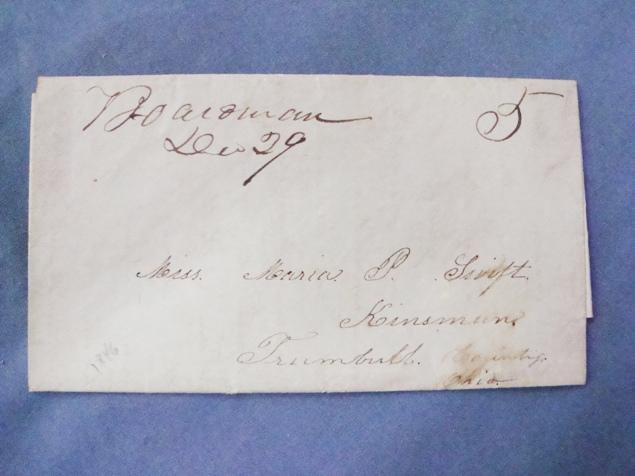 Boardman 5
Dec 29
Miss. Maria P. Swift.
Kinsman.
Trumbull. County.
Ohio.
1846